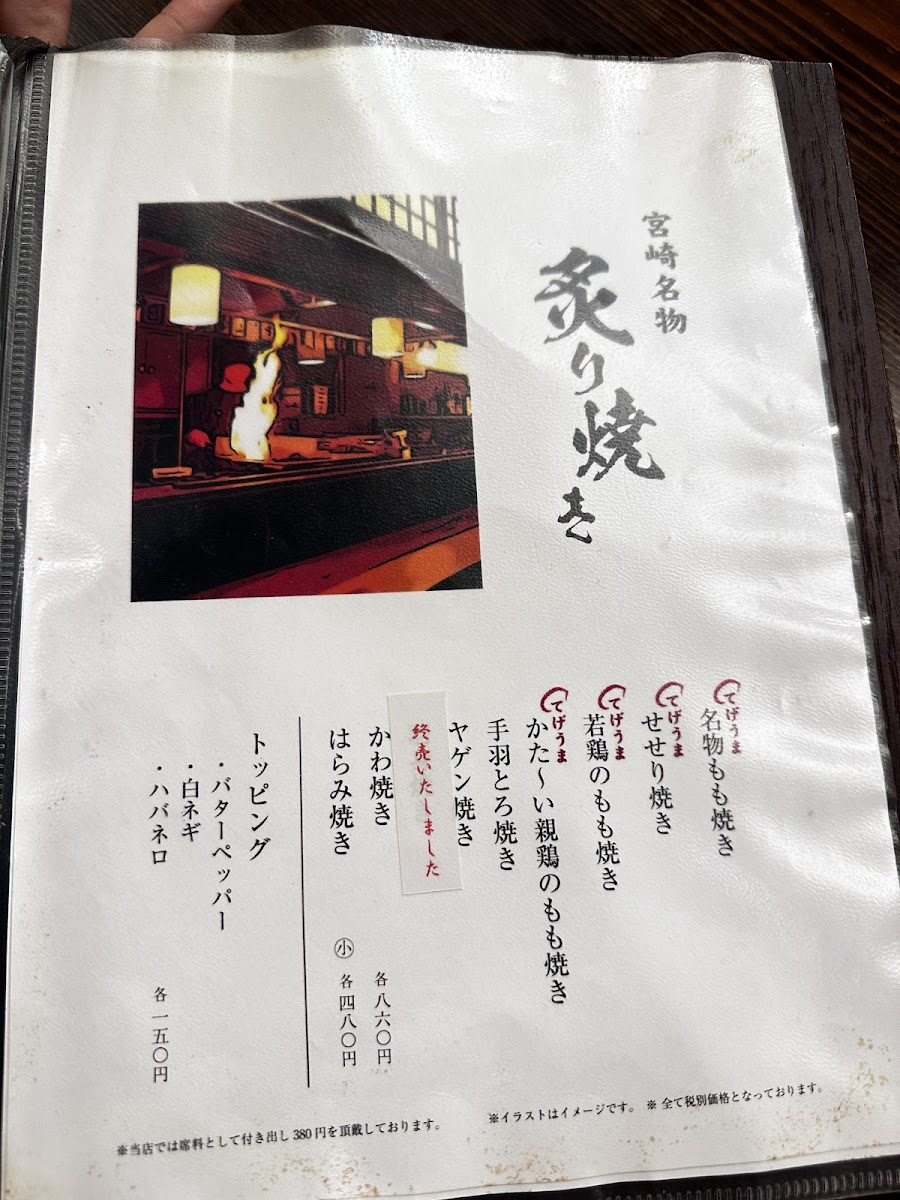 宮崎名物
炙り焼き
てげうま
名物もも焼き
てげうま
せせり焼き
てげうま
若鶏のもも焼き
てげうま
かた〜い親鶏のもも焼き
手羽とろ焼き
ヤゲン焼き
終売いたしました
かわ焼き
各八六〇円
はらみ焼き
小 各四八〇円
トッピング
・バターペッパー
・白ネギ
・ハバネロ
各一五〇円
※イラストはイメージです。 ※全て税別価格となっております。
※当店では席料として付き出し380円を頂戴しております。